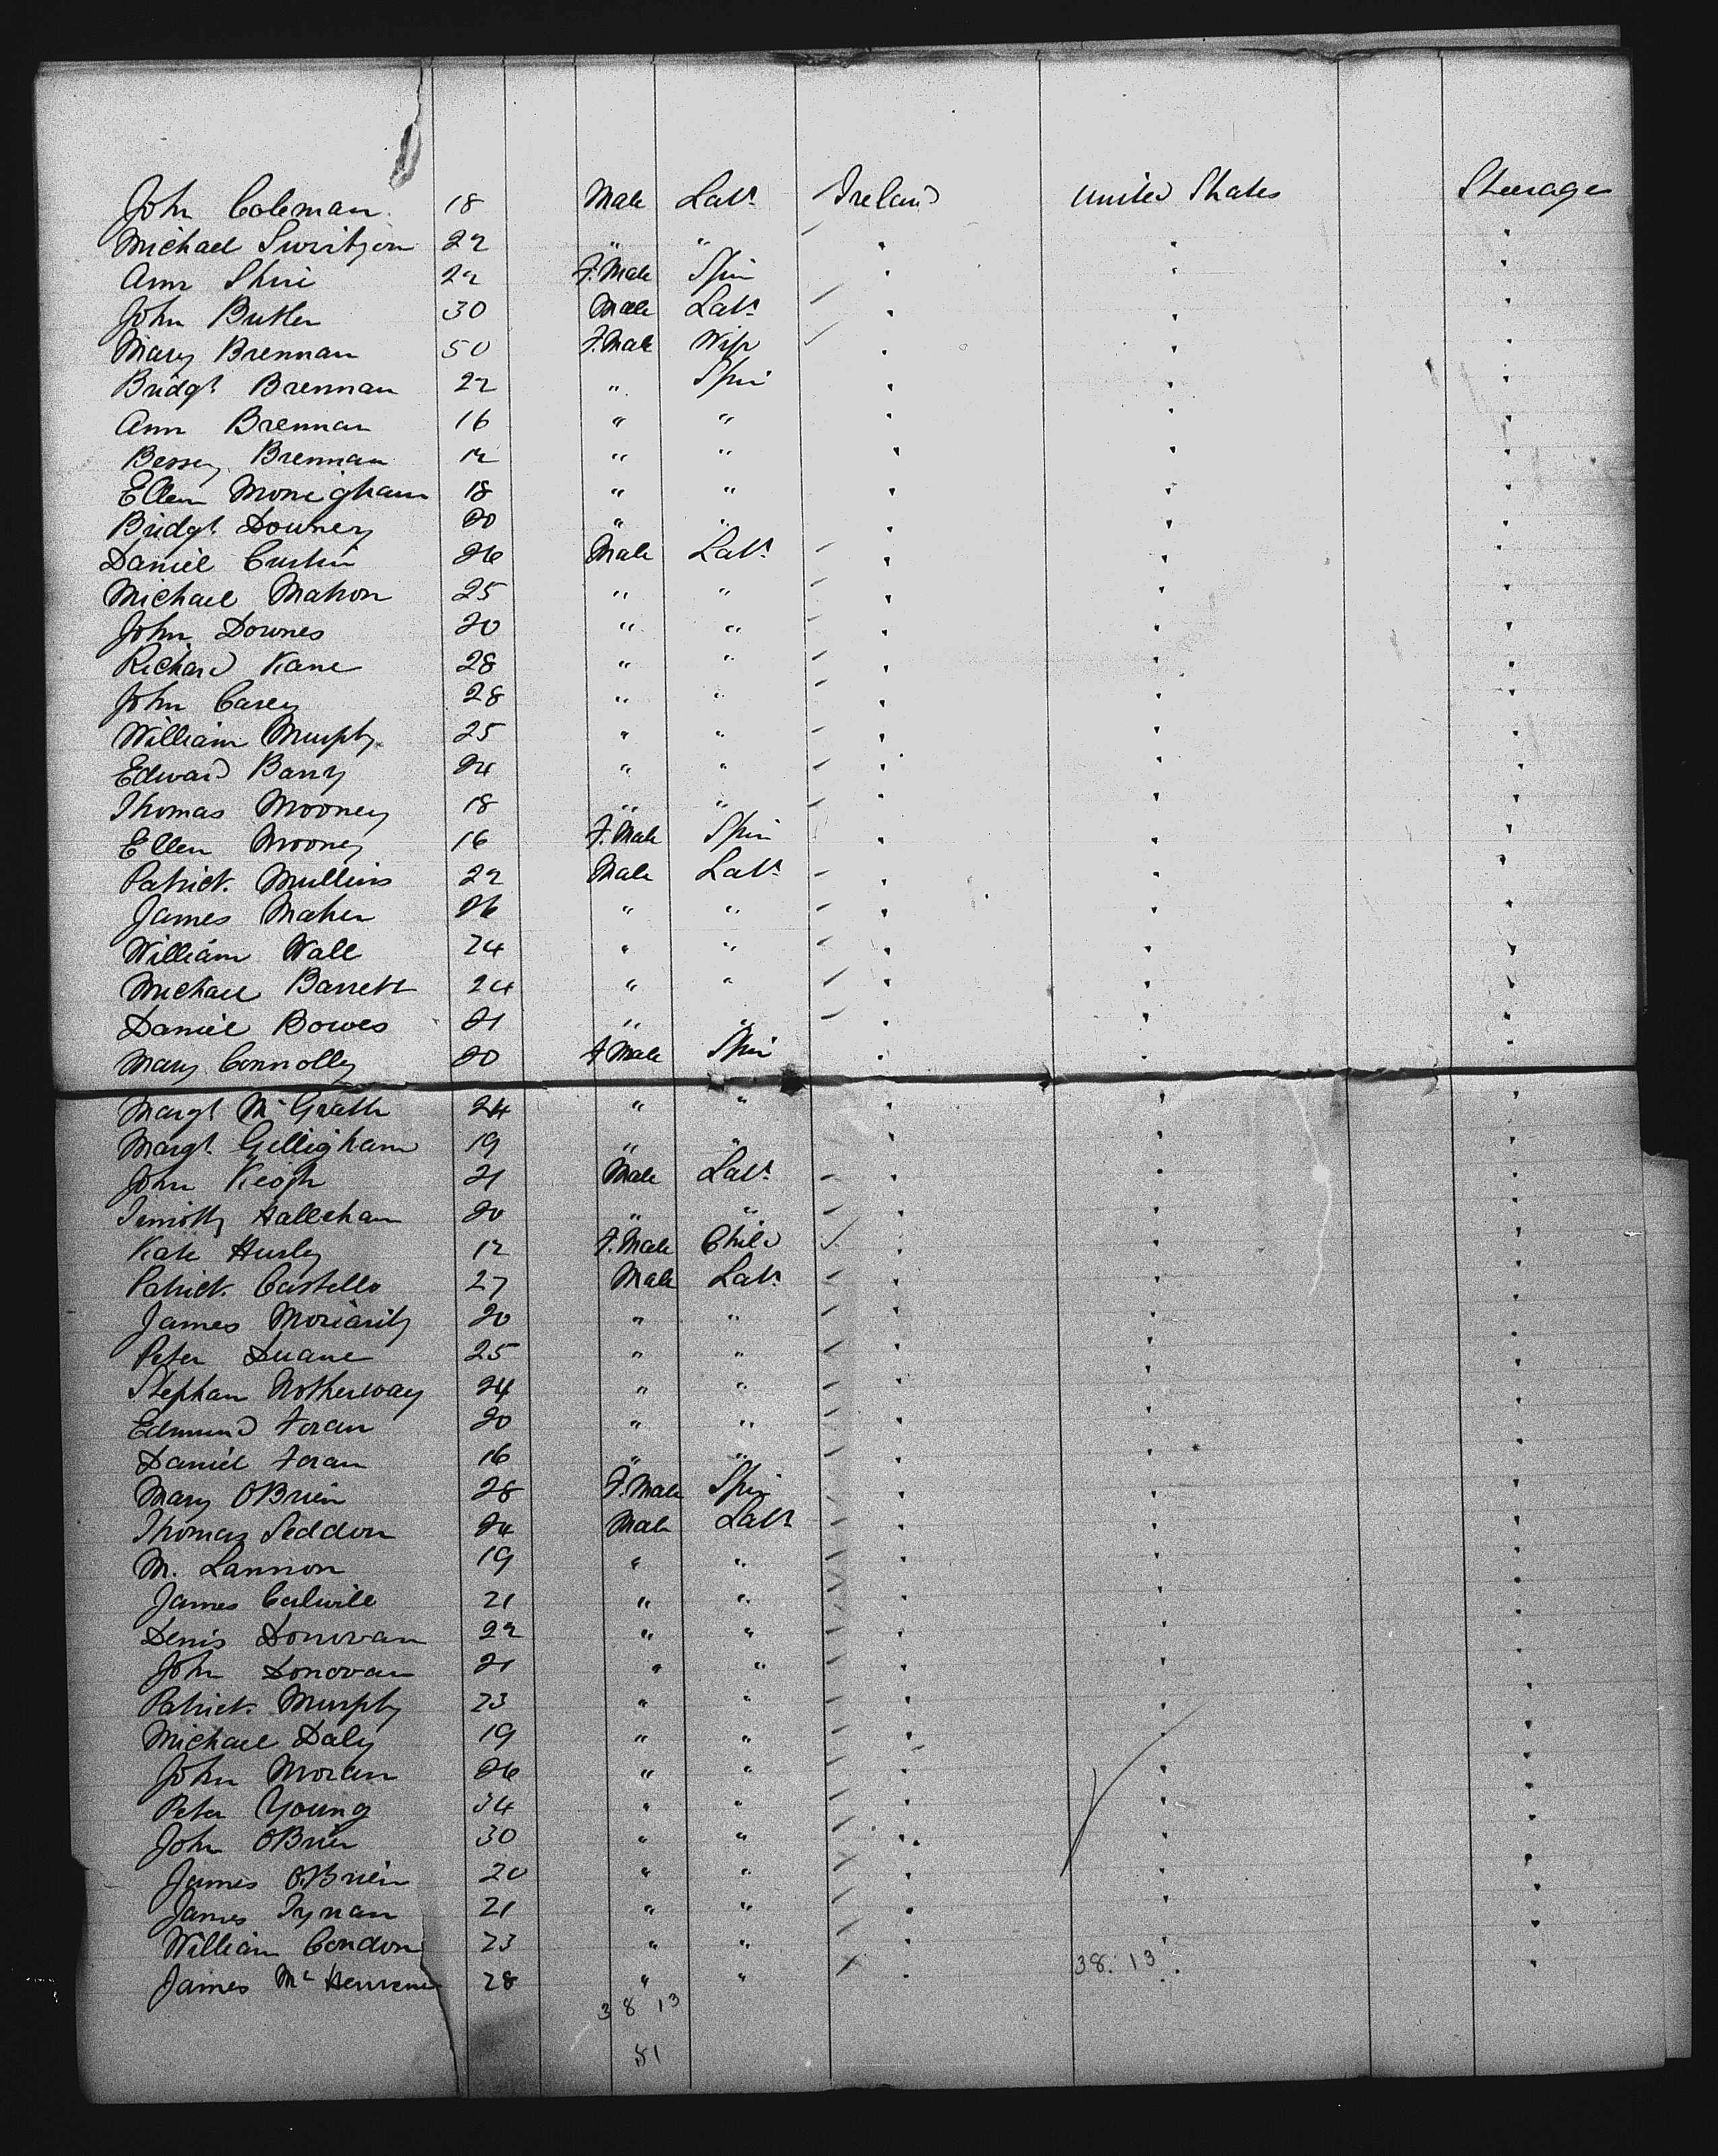 John Coleman 18 Male Labr Ireland United States Steerage
Michael 22 " " " " "
Ann 22 F. Male Spin " " "
John Butler 30 Male Labr " " "
Mary Brennan 50 F. Male Wife " " "
Bridgt Brennan 22 " Spin " " "
Ann Brennan 16 " " " " "
Bessey Brennan 12 " " " " "
Ellen Monigham 18 " " " " "
Bridgt Downey 20 " " " " "
Daniel 26 Male Labr " " "
Michael Mahon 25 " " " " "
John Downes 20 " " " " "
Richard Kane 28 " " " " "
John Carey 28 " " " " "
William Murphy 25 " " " " "
Edward Barry 24 " " " " "
Thomas Mooney 18 " " " " "
Ellen Mooney 16 F. Male Spin " " "
Patrick Mullins 22 Male Labr " " "
James Maher 26 " " " " "
William Wall 24 " " " " "
Michael Barrett 24 " " " " "
Daniel Bowes 21 " " " " "
Mary Connolly 20 F Male Spin " " "
Margt McGrath 24 " " " " "
Margt Gilligham 19 " " " " "
John Keogh 21 Male Labr " " "
Timothy Hallehan 20 " " " " "
Kate Hurley 12 F. Male Child " " "
Patrick Castello 27 Male Labr " " "
James Moriarity 20 " " " " "
Peter Duane 25 " " " " "
Stephan Notherway 24 " " " " "
Edmund Foran 20 " " " " "
Daniel Foran 16 " " " " "
Mary OBrien 28 F. Male Spin " " "
Thomas Seddon 24 Male Labr " " "
M. Lannon 19 " " " " "
James 21 " " " " "
Denis Donovan 22 " " " " "
John Donovan 21 " " " " "
Patrick Murphy 23 " " " " "
Michael Daly 19 " " " " "
John Moran 26 " " " " "
Peter Young 34 " " " " "
John OBrien 30 " " " " "
James OBrien 20 " " " " "
James Tynan 21 " " " " "
William Condon 23 " " " " "
James Mc 28 " " " 38. 13 "
38 13
51